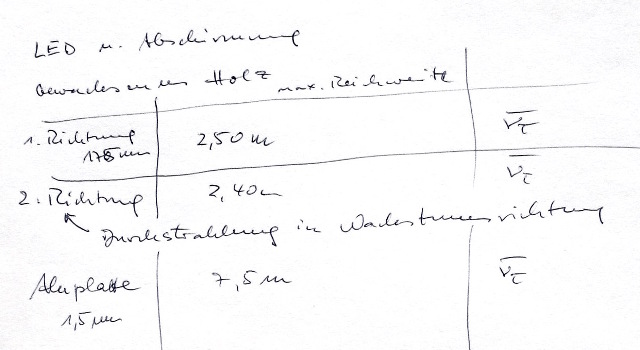 LED u. Abschirmung
gewachsenes Holz max. Reichweite
1. Richtung 2,50 m ν̅τ
175mm
2. Richtung 2,40m ν̅τ
Durchstrahlung in Wachstumsrichtung
Aluplatte 7,5m ν̅τ
1,5mm